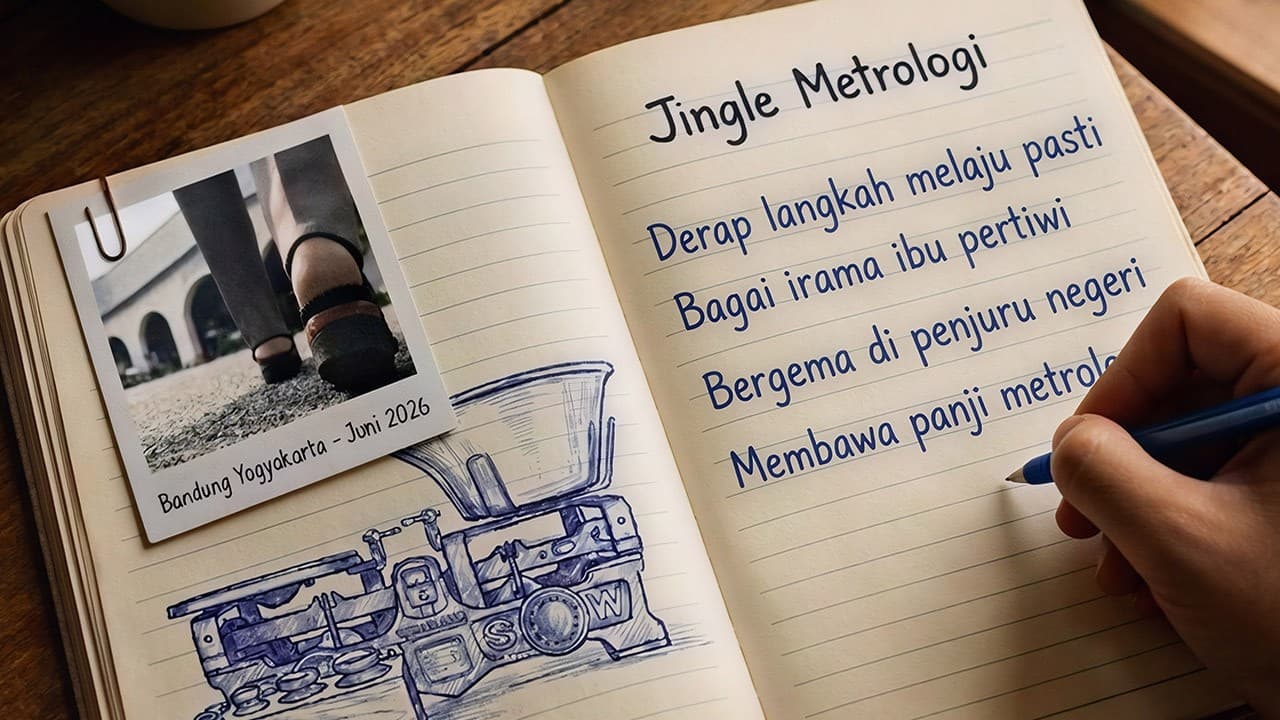 Bandung Yogyakarta - Juni 2026
S W
Jingle Metrologi
Derap langkah melaju pasti
Bagai irama ibu pertiwi
Bergema di penjuru negeri
Membawa panji